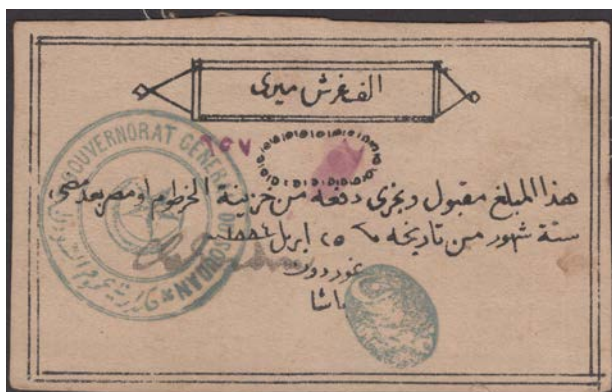 الف غرش ميرى
GOUVERNORAT GENERAL DU SOUDAN
هذا المبلغ مقبول ويجرى دفعه من خزينة الخرطوم او مصر بعد مضى
ستة شهور من تاريخه ٢٥ ابريل ١٨٨٤
غوردون
باشا